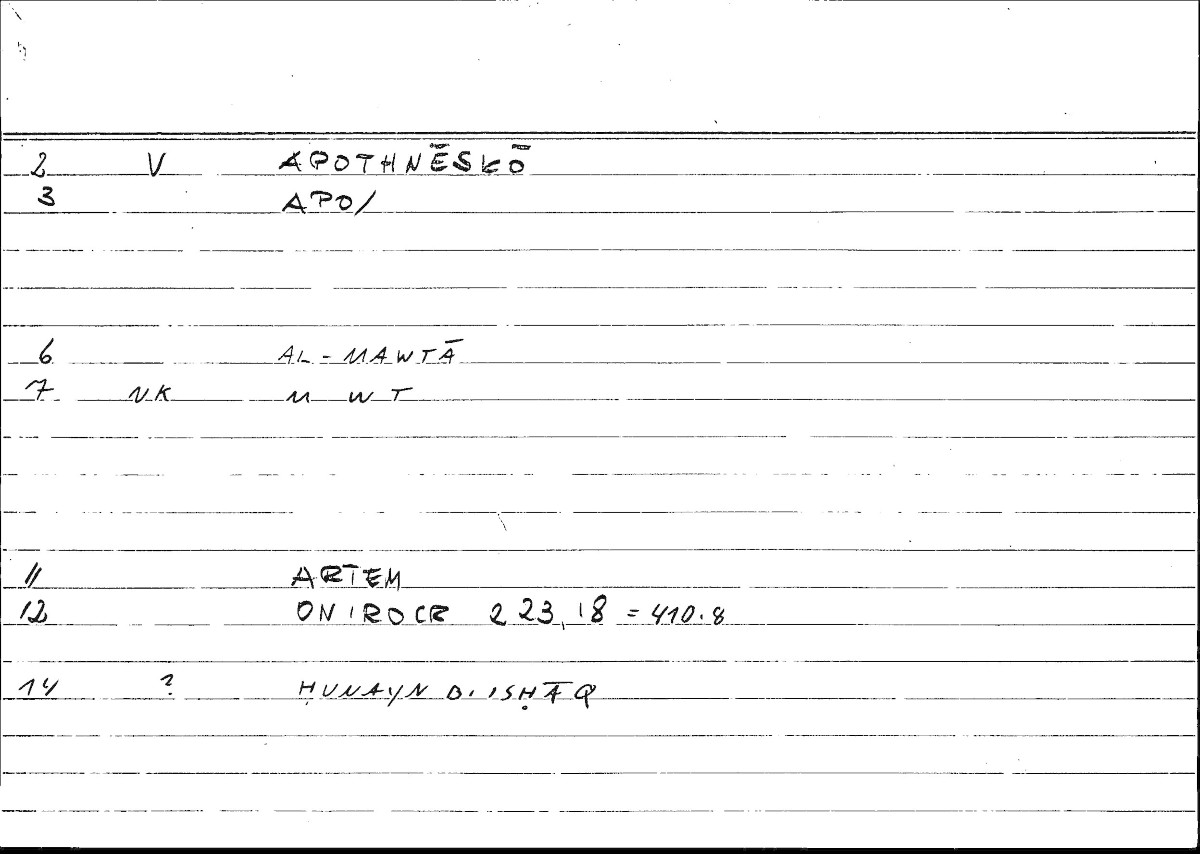 2 V APOTHNĒSKŌ
3 APO/
6 AL-MAWTĀ
7 NK M W T
11 ARTEM
12 ONIROCR 223,18 = 410.8
14 ? ḤUNAYN B. ISḤĀQ